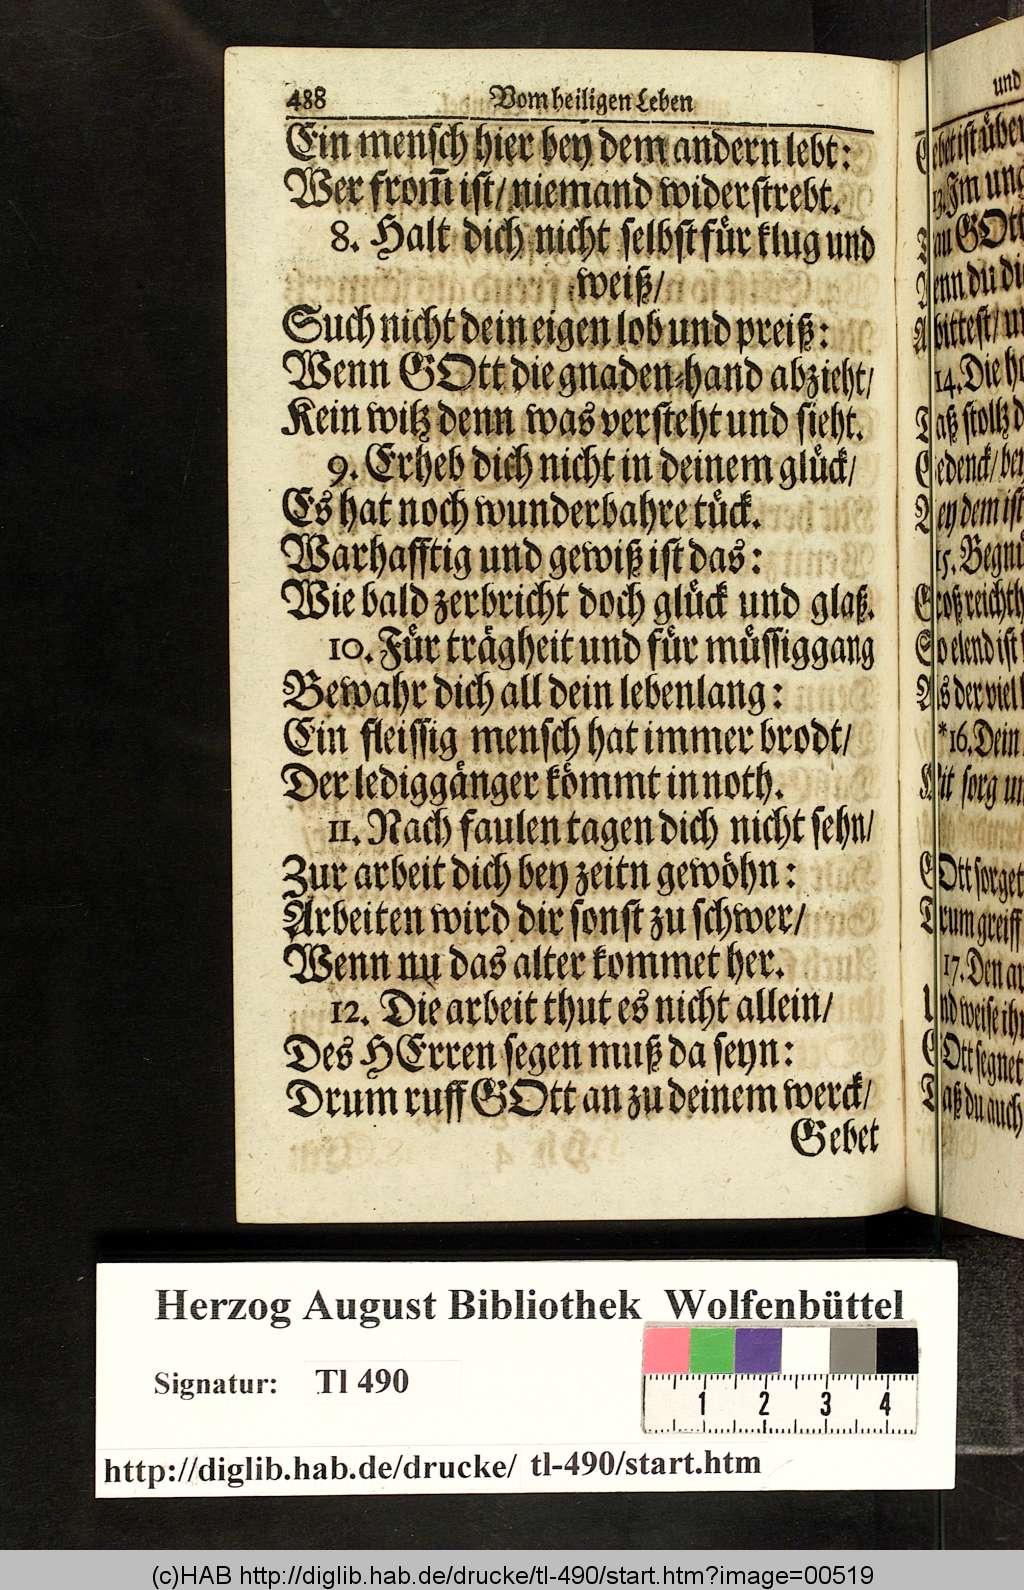 488 Vom heiligen Leben
Ein mensch hier bey dem andern lebt:
Wer from̃ ist/ niemand widerstrebt.
8. Halt dich nicht selbst für klug und
weiß/
Such nicht dein eigen lob und preiß:
Wenn GOtt die gnaden-hand abzieht/
Kein witz denn was versteht und sieht.
9. Erheb dich nicht in deinem glück/
Es hat noch wunderbahre tück.
Warhafftig und gewiß ist das:
Wie bald zerbricht doch glück und glaß.
10. Für trägheit und für müssiggang
Bewahr dich all dein lebenlang:
Ein fleissig mensch hat immer brodt/
Der lediggänger kömmt in noth.
11. Nach faulen tagen dich nicht sehn/
Zur arbeit dich bey zeitn gewöhn:
Arbeiten wird dir sonst zu schwer/
Wenn nu das alter kommet her.
12. Die arbeit thut es nicht allein/
Des HErren segen muß da seyn:
Drum ruff GOtt an zu deinem werck/
Gebet
und
ist über
13. Im
GOtt
wenn du
bittest/
14. Die
Daß stoltz
Gedenck/
Bey dem ist
15. Begnü
Groß reichth
So elend ist
Als der viel
*16. Dein
Mit sorg
GOtt sorget
Drum greiff
17. Den
Und weise
GOtt segnet
Daß du auch
Herzog August Bibliothek Wolfenbüttel
Signatur: Tl 490
1 2 3 4
http://diglib.hab.de/drucke/ tl-490/start.htm
(c)HAB http://diglib.hab.de/drucke/tl-490/start.htm?image=00519